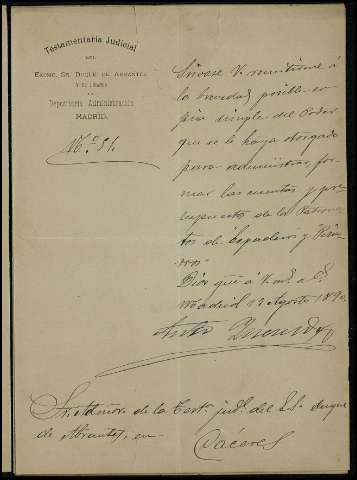 Testamentaria Judicial
DEL
EXCMO. SR. DUQUE DE ABRANTES
Y DE LINARES
Depositaría Administración
MADRID.
No. 51.
Sirvase V. remitirme á
la brevedad posible co-
pia simple del Poder
que se le haya otorgado
para administrar, for-
mar las cuentas y pre-
supuesto de los Patrona-
tos de Espadero y
Dios gue á V. ms. as.
Madrid 13 Agosto 1890
Sr. Admor. de la Test. jud. del E. S. duque
de Abrantes, en
Cáceres